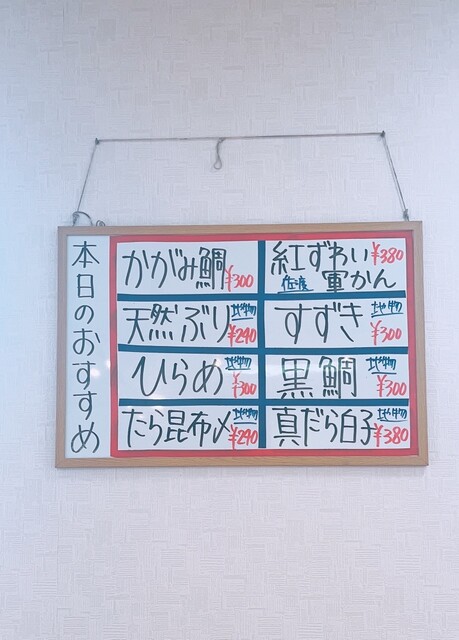 本日のおすすめ
かがみ鯛 ¥300
紅ずわい ¥380
佐渡 軍かん
天然ぶり 地物 ¥240
すずき 地物 ¥300
ひらめ 地物 ¥300
黒鯛 地物 ¥300
たら昆布〆 地物 ¥240
真だら白子 地物 ¥380